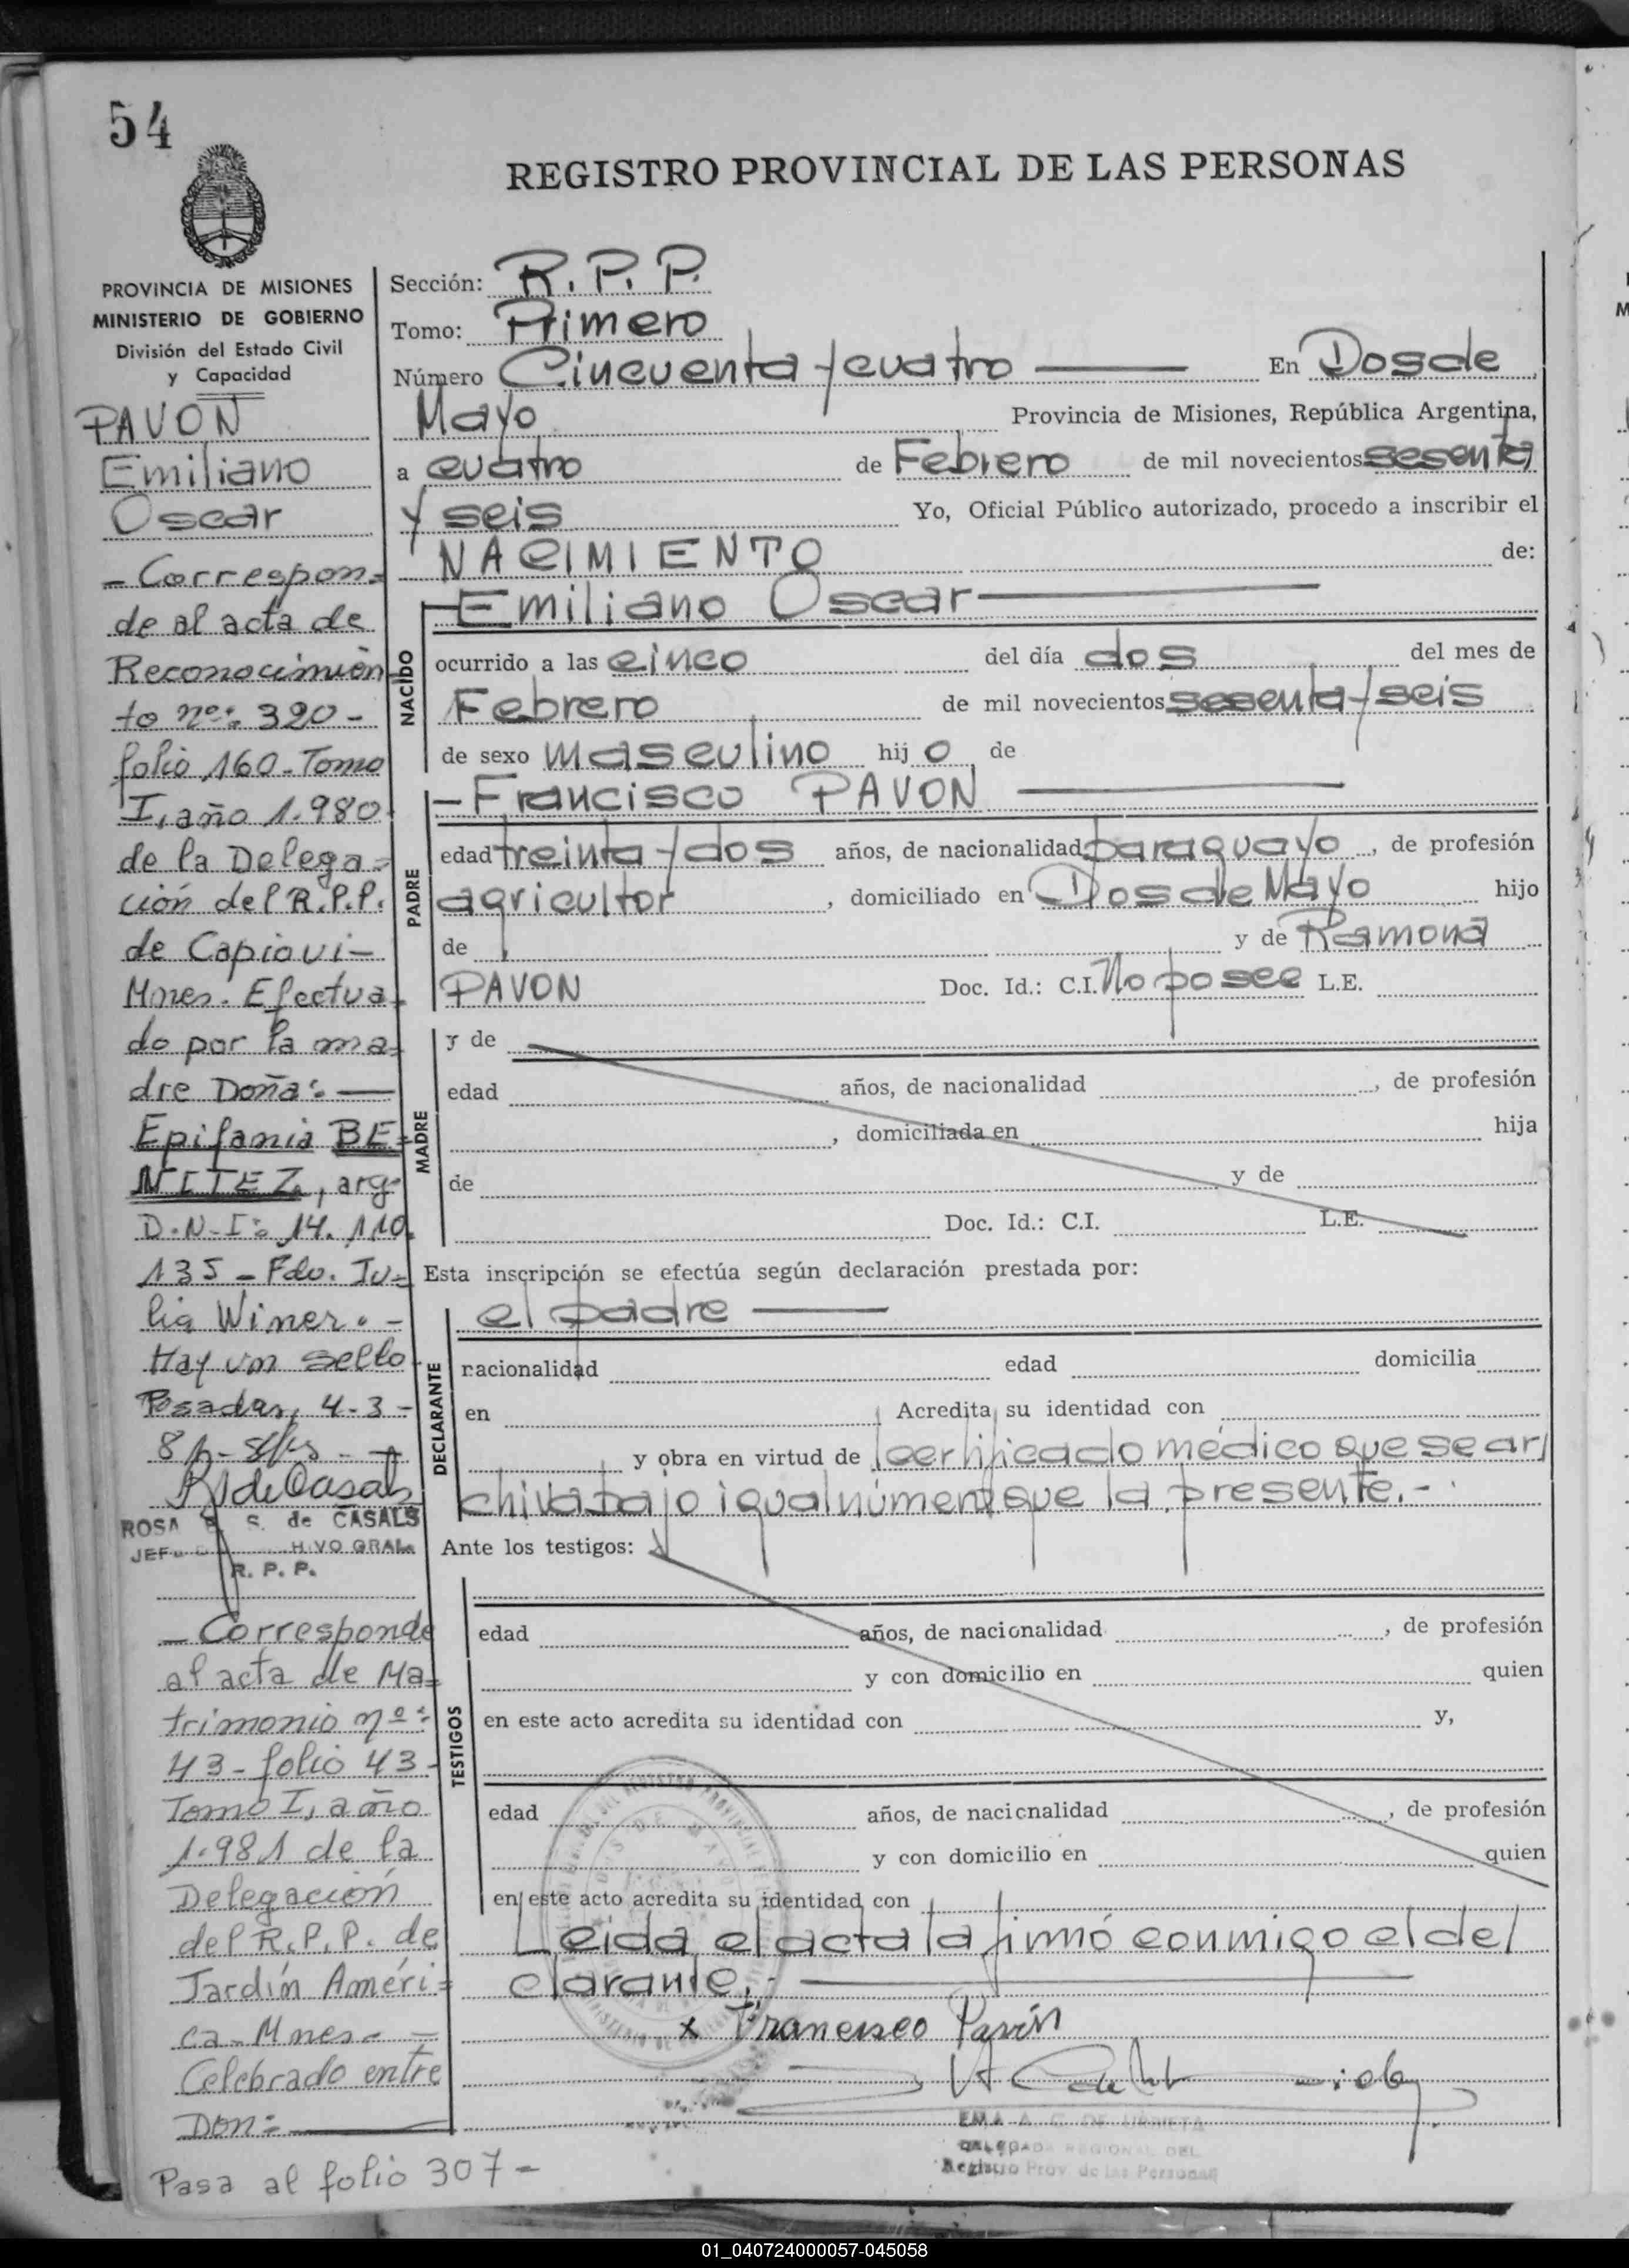 54
REGISTRO PROVINCIAL DE LAS PERSONAS
PROVINCIA DE MISIONES
MINISTERIO DE GOBIERNO
División del Estado Civil
y Capacidad
PAVON
Emiliano
Oscar
- Correspon=
de al acta de
Reconocimien
to nº: 320 -
folio 160 - Tomo
I, año 1.980
de la Delega=
ción del R.P.P.
de Capiovi -
Mnes. Efectua
do por la ma=
dre Doña: —
Epifania BE=
NITEZ, arg
D.N.I: 14.110.
135 - Fdo. Ju=
lia Winer. -
Hay un sello
Posadas, 4-3-
ROSA S. de CASALS
R. P. P.
- Corresponde
al acta de Ma=
trimonio nº:
43 - folio 43 -
Tomo I, año
1.981 de la
Delegación
del R.P.P. de
Jardín Améri=
ca - Mnes. =
Celebrado entre
Don: —
Pasa al folio 307 -
Sección: R. P. P.
Tomo: Primero
Número Cincuenta y cuatro — En Dos de
Mayo Provincia de Misiones, República Argentina,
a cuatro de Febrero de mil novecientos sesenta
y seis Yo, Oficial Público autorizado, procedo a inscribir el
NACIMIENTO de:
NACIDO
- Emiliano Oscar —
ocurrido a las cinco del día dos del mes de
Febrero de mil novecientos sesenta y seis
de sexo masculino hij o de
PADRE
- Francisco PAVON —
edad treinta y dos años, de nacionalidad paraguayo, de profesión
agricultor, domiciliado en Dos de Mayo hijo
de y de Ramona
PAVON Doc. Id.: C.I. No posee L.E.
MADRE
y de
edad años, de nacionalidad , de profesión
, domiciliada en hija
de y de
Doc. Id.: C.I. L.E.
Esta inscripción se efectúa según declaración prestada por:
DECLARANTE
el padre —
nacionalidad edad domicilia
en Acredita su identidad con
y obra en virtud de certificado médico que se ar
chiva bajo igual número que la presente. -
Ante los testigos:
TESTIGOS
edad años, de nacionalidad , de profesión
y con domicilio en quien
en este acto acredita su identidad con y,
edad años, de nacionalidad , de profesión
y con domicilio en quien
en este acto acredita su identidad con
Leida el acta la firmó conmigo el de
clarante. - —
x Francisco Pavón
DELEGADA REGIONAL DEL
Registro Prov. de las Personas
01_040724000057-045058